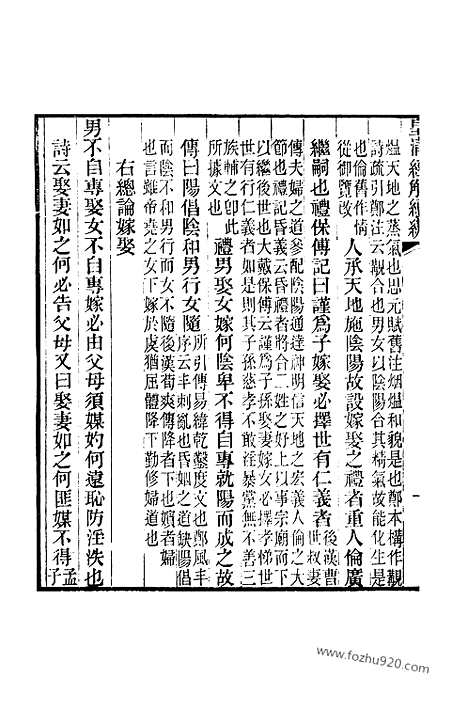 皇清經解續編
熅天地之蒸氣也思元賦舊注烟熅和貌是也鄭本構作覯
詩疏引鄭注云覯合也男女以陰陽合其精氣故能化生是
也倫舊作情
從御覽改
人承天地施陰陽故設嫁娶之禮者重人倫廣
繼嗣也禮保傅記曰謹爲子嫁娶必擇世有仁義者
後漢曹
世叔妻
傳夫婦之道參配陰陽通達神明信天地之宏義人倫之大
節也禮記昏義云昏禮者將合二姓之好上以事宗廟而下
以繼後世也大戴保傅云謹爲子孫娶妻嫁女必擇孝悌世
世有行仁義者如是則其子孫慈孝不敢淫暴黨無不善三
族輔之卽此
所據文也
禮男娶女嫁何陰卑不得自專就陽而成之故
傳曰陽倡陰和男行女隨
所引傳易緯乾鑿度文也鄭風丰
序云丰刺亂也昏姻之道缺陽倡
而陰不和男行而女不隨後漢荀爽傳降者下也嬪者婦
也言雖帝堯之女下嫁於虞猶屈體降下勤修婦道也
右總論嫁娶
男不自專娶女不自專嫁必由父母須媒妁何遠恥防淫泆也
詩云娶妻如之何必告父母又曰娶妻如之何匪媒不得
孟
子
www.fozhu920.com